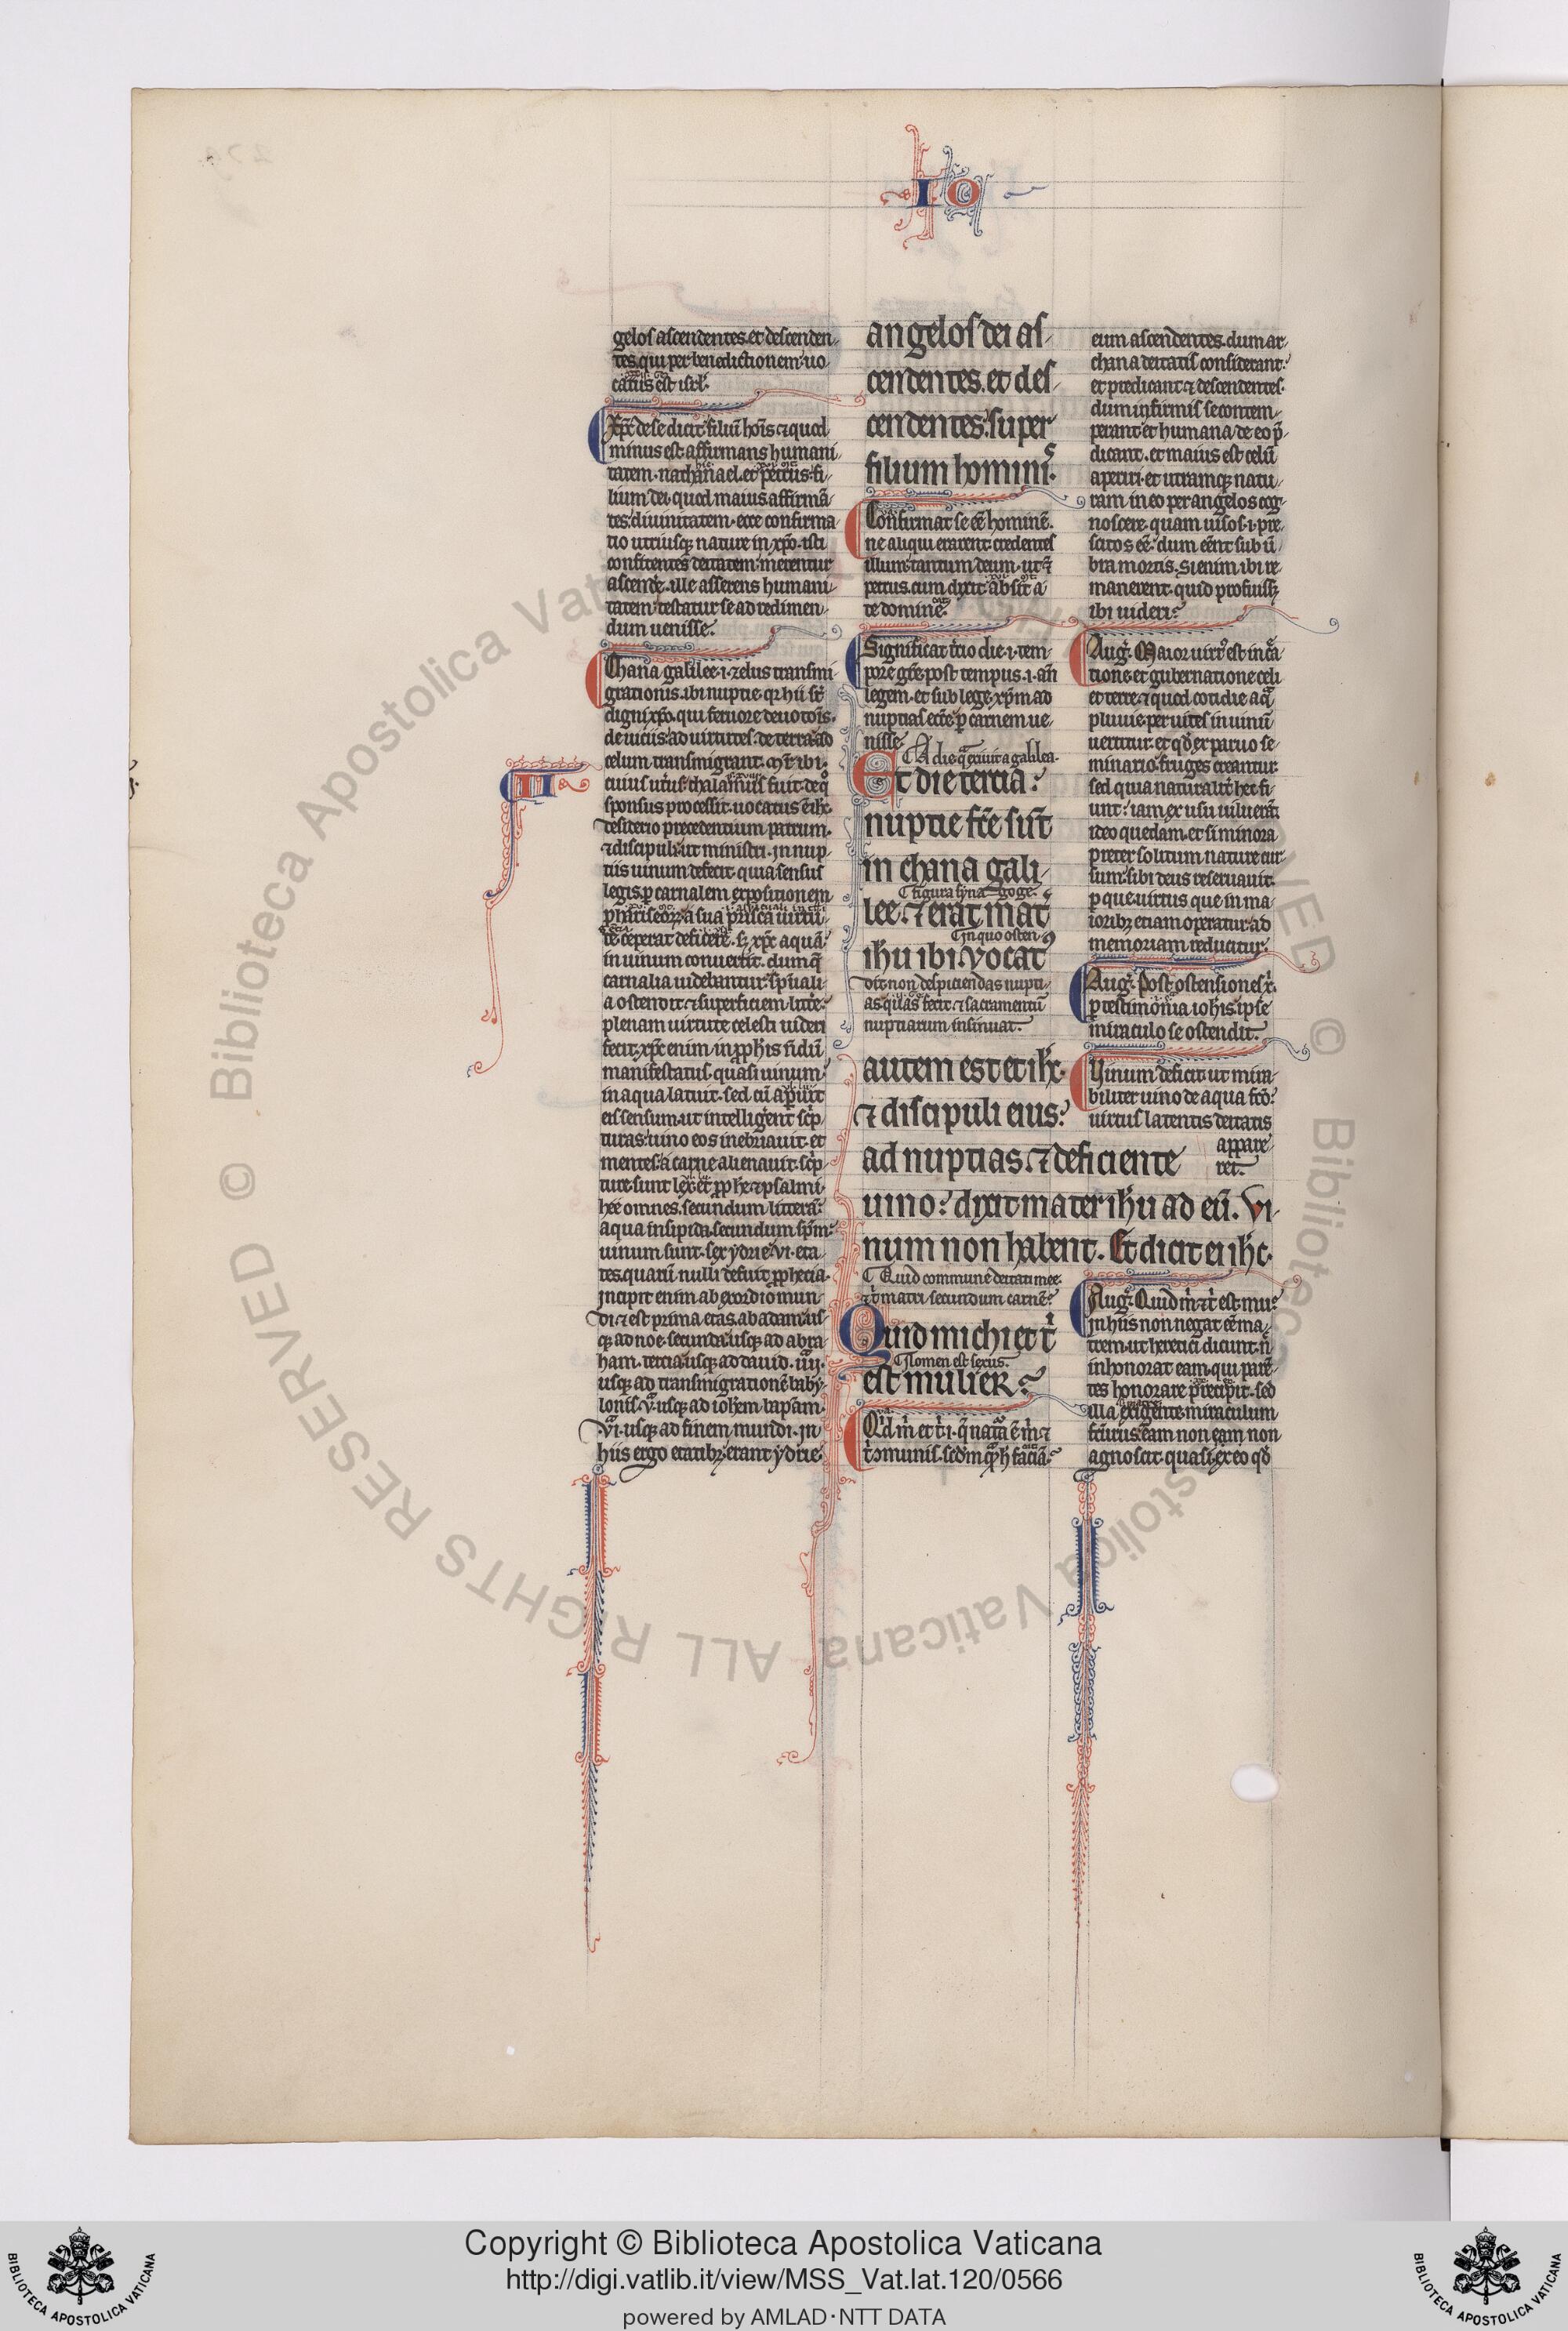 IO
gelos ascendentes. et descenden-
tes. qui per benedictionem uo-
catus est isrl.
Xpc de se dicit filiū hoīs ⁊ quod
minus est affirmans humani-
tatem. nathanael. et petrus. fi-
lium dei. quod maius affirmā-
tes. diuinitatem. ecce confirma-
tio utriusq; nature in xpo. isti
confitentes deitatem. merentur
ascende. ille asserens humani-
tatem. testatur se ad redimen-
dum uenisse.
Chana galilee. i. zelus transmi-
grationis. ibi nuptie. qr hii st
digni xpo. qui feruore deuotōis.
de uiciis ad uirtutes. de terra ad
celum transmigrant. ibi.
cuius utus. thalamus fuit. de q̊
sponsus processit. uocatus ē ihc
desiderio precedentium patrum.
⁊ discipuli ut ministri. in nup-
tiis uinum defecit. quia sensus
legis. p carnalem expositionem
phariseoꝝ. a sua prisca uirtu-
te ceperat deficere. sꝫ xpc aquā
in uinum conuertit. dum q̄
carnalia uidebantur. spūali-
a ostendit. ⁊ superficiem littere
plenam uirtute celesti uideri
fecit. xpc enim in pphis ndū
manifestatus. quasi uinum
in aqua latuit. sed cū apuit
eis sensum. ut intelligerent scp-
turas. uino eos inebriauit. et
mentes. a carne alienauit. scp-
ture sunt lex. et pphe. ⁊ psalmi.
hee omnes. secundum litterā
aqua insipida. secundum spm
uinum sunt. sex ydrie. vi. eta-
tes. quarū nulli defuit pphecia.
incipit enim ab exordio mun-
di. ⁊ est prima etas. ab adam us-
q; ad noe. secunda. usq; ad abra-
ham. tercia usq; ad dauid. iiii.
usq; ad transmigrationē baby-
lonis. v. usq; ad iohem baptam.
vi. usq; ad finem mundi. in
hiis ergo etatibꝫ. erant ydrie.
II
angelos dei as-
cendentes. et des-
cendentes. super
filium hominis.
Confirmat se eē hominē.
ne aliqui erarent. credentes
illum tantum deum. ut
petrus. cum dixit. absit a
te domine.
Significat trcio die. i. tem-
pore gre. post tempus. i. an
legem. et sub lege. xpm ad
nuptias eccē p carnem ue-
nisse.
A die q̄ exiuit a galilea.
Et die tercia.
nuptie fcē sūt
in chana gali-
figura synagoge.
lee. ⁊ erat mat
In quo osten-
ihu ibi. Vocat
dit. non despiciendas nupti-
as. quas fecit. ⁊ sacramentū
nuptiarum insinuat.
autem est et ihc.
⁊ discipuli eius.
ad nuptias. ⁊ deficiente
uino. dixit mater ihu ad eū. Vi-
num non habent. Et dicit ei ihc.
Quid commune deitati mee.
⁊ matri secundum carnē.
Quid michi et t̄
Nomen est sexus.
est mulier.
Qd m̄ et t̄. i. natā ē m̄ ⁊
t̄ ꝯmunis. scdm q̄ h faciā.
eum ascendentes. dum ar-
chana deitatis considerant.
et predicant. ⁊ descendentes.
dum infirmis se contem-
perant. et humana de eo p̄-
dicant. et maius est celū
aperiri. et utramq; natu-
ram in eo per angelos cog-
noscere. quam uisos. i. pre-
scitos eē. dum eēnt sub ū-
bra mortis. si enim ibi re-
manerent. quid profuissꝫ
ibi uideri.
Aug. Maior uirt᷒ est in cā-
tione. et gubernatione celi
et terre. ⁊ quod cotidie aq̄
pluuie. per uites in uinū
uertitur. et qd ex paruo se-
minario. fruges creantur.
sed quia naturalit hec fi-
unt. iam ex usu uiluerāt.
ideo quedam. et si minora
preter solitum nature cur-
sum. sibi deus reseruauit.
p que uirtus que in ma-
ioribꝫ etiam operatur. ad
memoriam reducitur.
Aug. Post ostensiones
p testimonia iohis. ipse
miraculo se ostendit.
Vinum deficit. ut mira-
biliter uino de aqua fcō
uirtus latentis deitatis
appare-
ret.
Aug. Quid m̄ ⁊ t̄ est mu.
in hiis non negat eē ma-
trem. ut heretici dicunt. n̄
inhonorat eam. qui parē-
tes honorare precepit. sed
illa exigente miraculum
fcturus. eam non eam non
agnoscit. quasi. ex eo qd
Copyright © Biblioteca Apostolica Vaticana
http://digi.vatlib.it/view/MSS_Vat.lat.120/0566
powered by AMLAD·NTT DATA
BIBLIOTECA APOSTOLICA VATICANA
BIBLIOTECA APOSTOLICA VATICANA
© Biblioteca Apostolica Vaticana ALL RIGHTS RESERVED